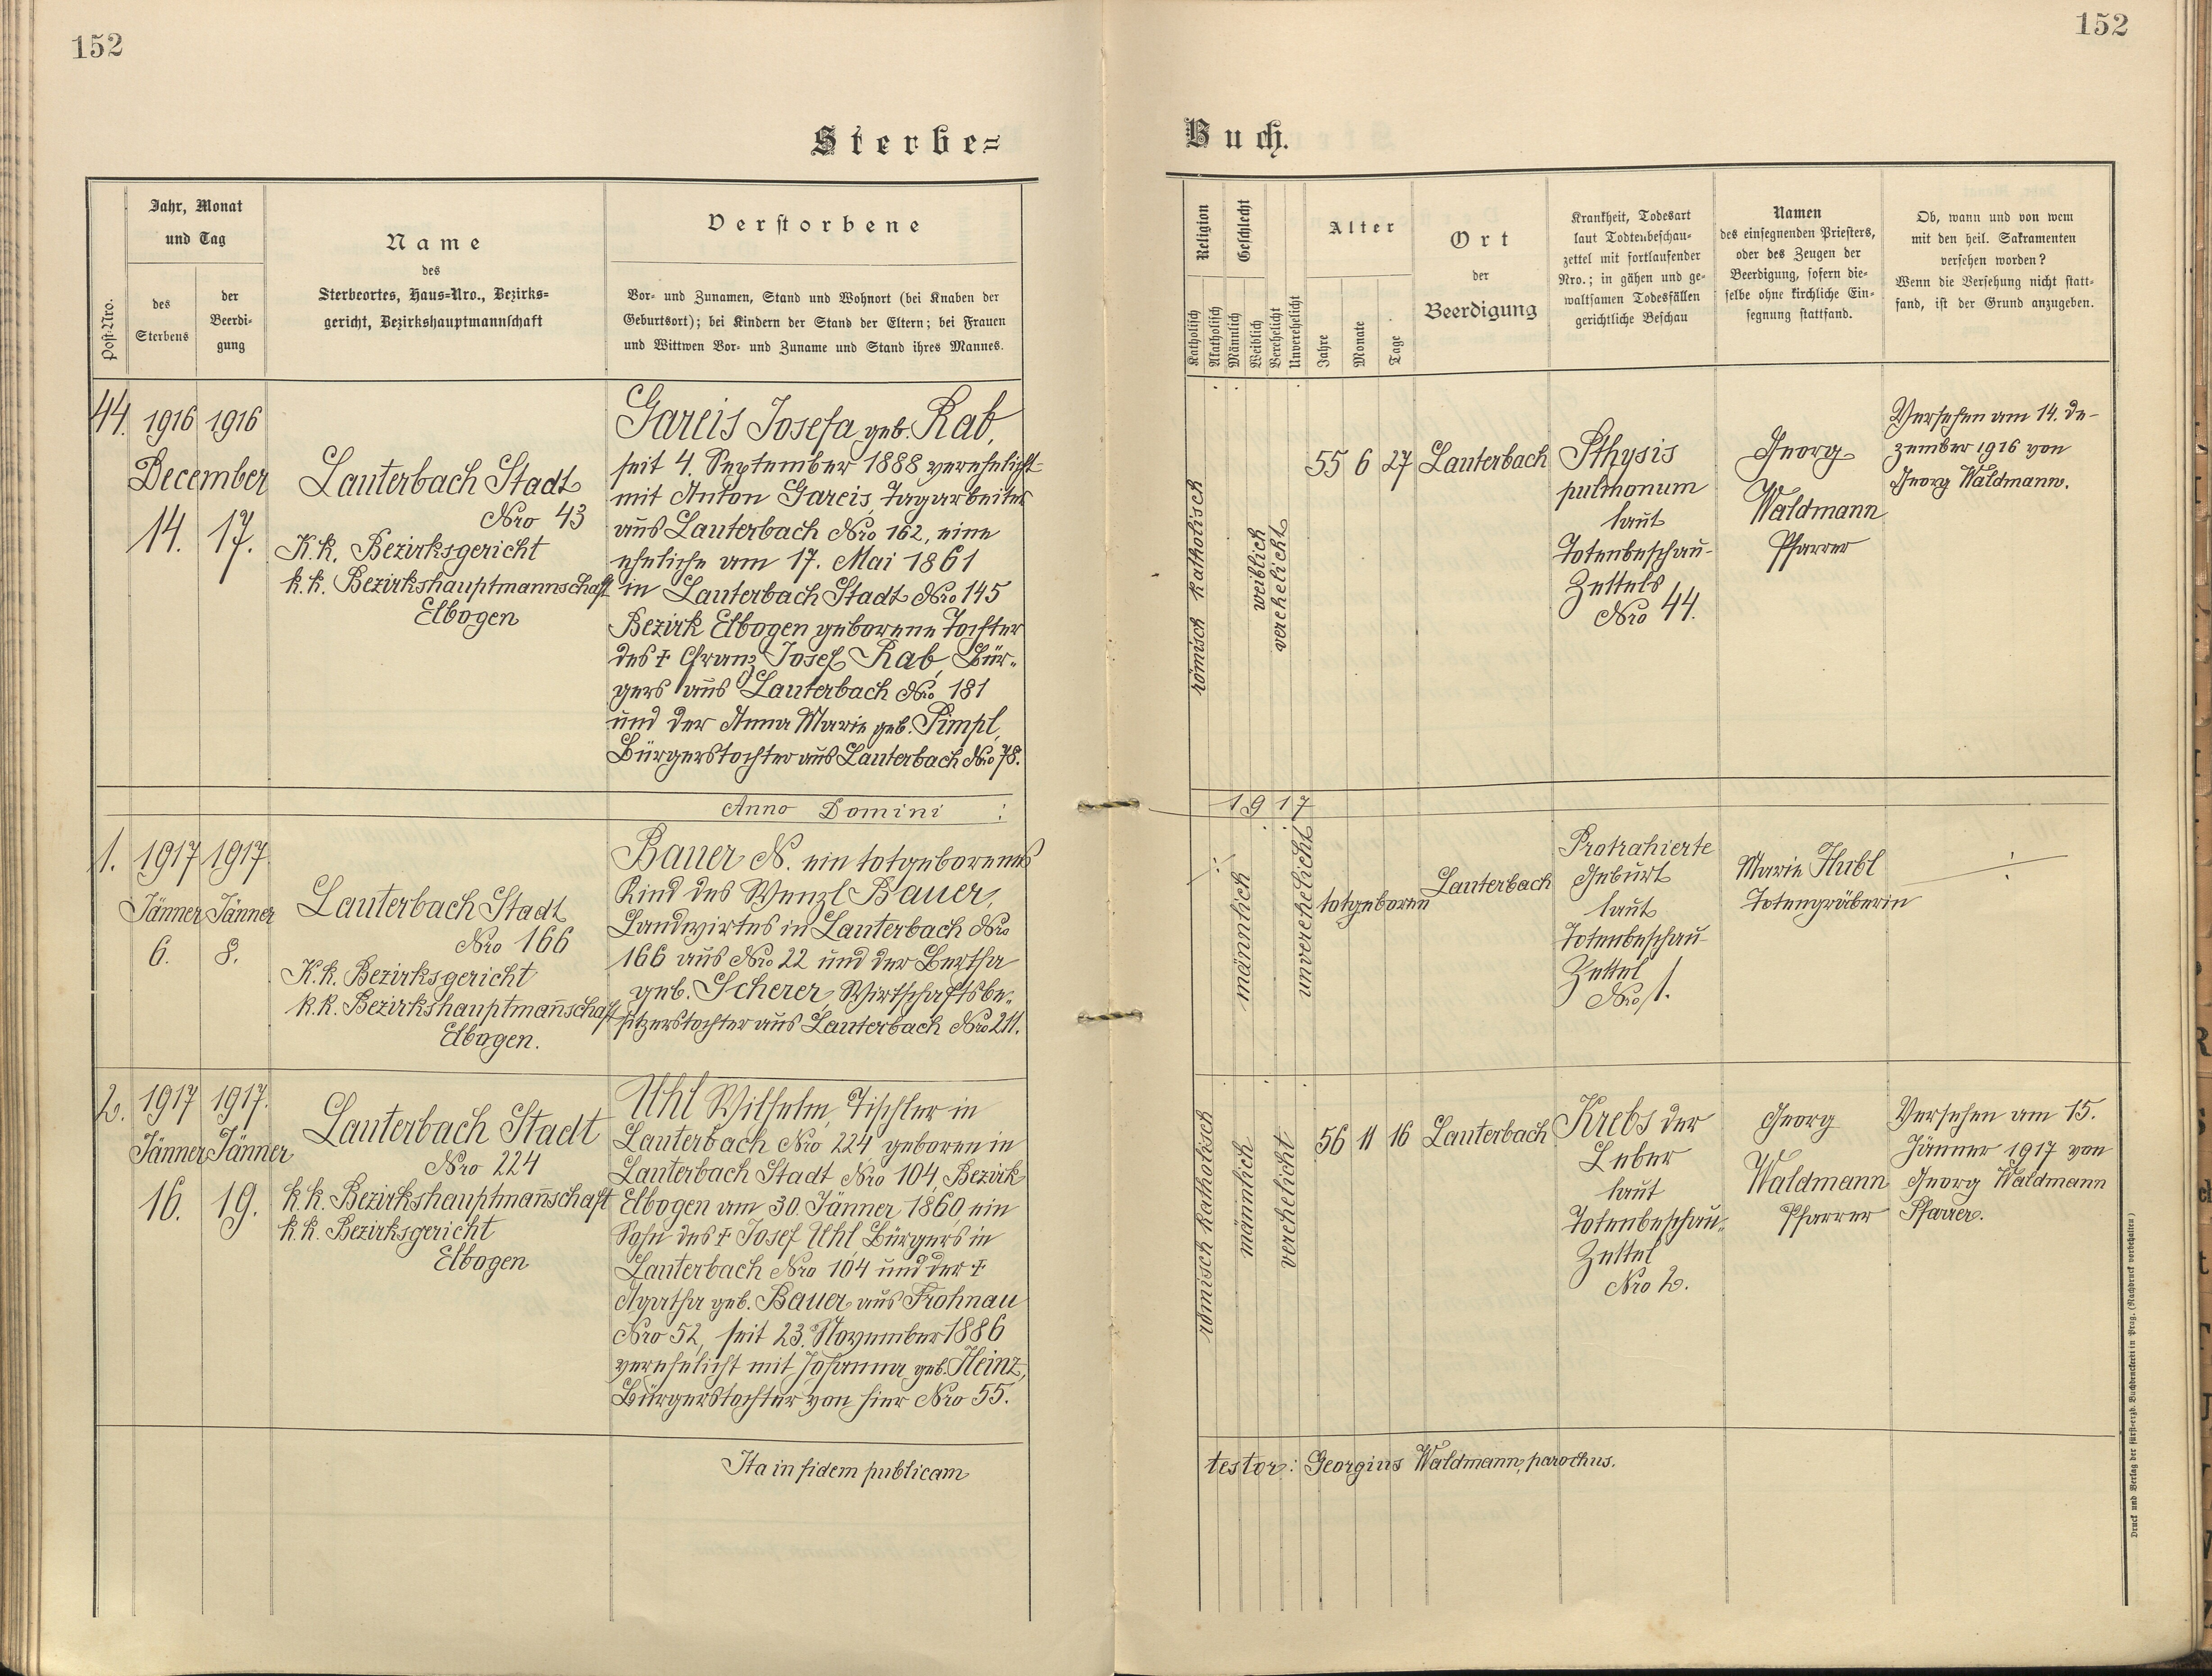 152
152
Sterbe=
Buch.
Post-Nro.
Jahr, Monat
und Tag
des
Sterbens
der
Beerdi-
gung
Name
des
Sterbeortes, Haus=Nro., Bezirks=
gericht, Bezirkshauptmannschaft
Verstorbene
Vor- und Zunamen, Stand und Wohnort (bei Knaben der
Geburtsort); bei Kindern der Stand der Eltern; bei Frauen
und Wittwen Vor- und Zuname und Stand ihres Mannes.
Religion
Katholisch
Akatholisch
Geschlecht
Männlich
Weiblich
Verehelicht
Unverehelicht
Alter
Jahre
Monate
Tage
Ort
der
Beerdigung
Krankheit, Todesart
laut Todtenbeschau-
zettel mit fortlaufender
Nro.; in gähen und ge-
waltsamen Todesfällen
gerichtliche Beschau
Namen
des einsegnenden Priesters,
oder des Zeugen der
Beerdigung, sofern die-
selbe ohne kirchliche Ein-
segnung stattfand.
Ob, wann und von wem
mit den heil. Sakramenten
versehen worden?
Wenn die Versehung nicht statt-
fand, ist der Grund anzugeben.
44.
1916 1916
December
14. 17.
Lauterbach Stadt
Nro 43
K.k. Bezirksgericht
k.k. Bezirkshauptmannschaft
Elbogen
Gareis Josefa geb. Rab,
seit 4. September 1888 verehelicht
mit Anton Gareis, Tagarbeiter
aus Lauterbach Nro 162, eine
eheliche am 17. Mai 1861
in Lauterbach Stadt Nro 145
Bezirk Elbogen geborene Tochter
des † Franz Josef Rab, Bür-
gers aus Lauterbach Nro 181
und der Anna Marie geb. Pimpl,
Bürgerstochter aus Lauterbach Nro 78.
römisch katholisch
weiblich
verehelicht
55 6 27
Lauterbach
Pthysis
pulmonum
laut
Totenbeschau-
Zettels
Nro 44.
Georg
Waldmann
Pfarrer
Versehen am 14. De-
zember 1916 von
Georg Waldmann.
Anno Domini :
1917
1.
1917 1917
Jänner Jänner
6. 8.
Lauterbach Stadt
Nro 166
K.k. Bezirksgericht
k.k. Bezirkshauptman̄schaft
Elbogen.
Bauer N. ein totgeborenes
Kind des Wenzl Bauer,
Landwirtes in Lauterbach Nro
166 aus Nro 22 und der Bertha
geb. Scherer, Wirtschaftsbe-
sitzerstochter aus Lauterbach Nro 211.
männlich
unverehelicht
totgeboren
Lauterbach
Protrahierte
Geburt
laut
Totenbeschau
Zettel
Nro 1.
Marie Hubl
Totengräberin
2.
1917 1917.
Jänner Jänner
16. 19.
Lauterbach Stadt
Nro 224
k.k. Bezirkshauptman̄schaft
k.k. Bezirksgericht
Elbogen
Uhl Wilhelm, Tischler in
Lauterbach Nro 224, geboren in
Lauterbach Stadt Nro 104, Bezirk
Elbogen am 30. Jänner 1860, ein
Sohn des † Josef Uhl Bürgers in
Lauterbach Nro 104 und der †
Agatha geb. Bauer aus Frohnau
Nro 52, seit 23. November 1886
verehelicht mit Johanna geb. Heinz,
Bürgerstochter von hier Nro 55.
römisch katholisch
männlich
verehelicht
56 11 16
Lauterbach
Krebs der
Leber
laut
Totenbeschau-
Zettel
Nro 2.
Georg
Waldmann
Pfarrer
Versehen am 15.
Jänner 1917 von
Georg Waldmann
Pfarrer.
Ita in fidem publicam
testor: Georgius Waldmann, parochus.
Druck und Verlag der fürst=erzb. Buchdruckerei in Prag. (Nachdruck vorbehalten)